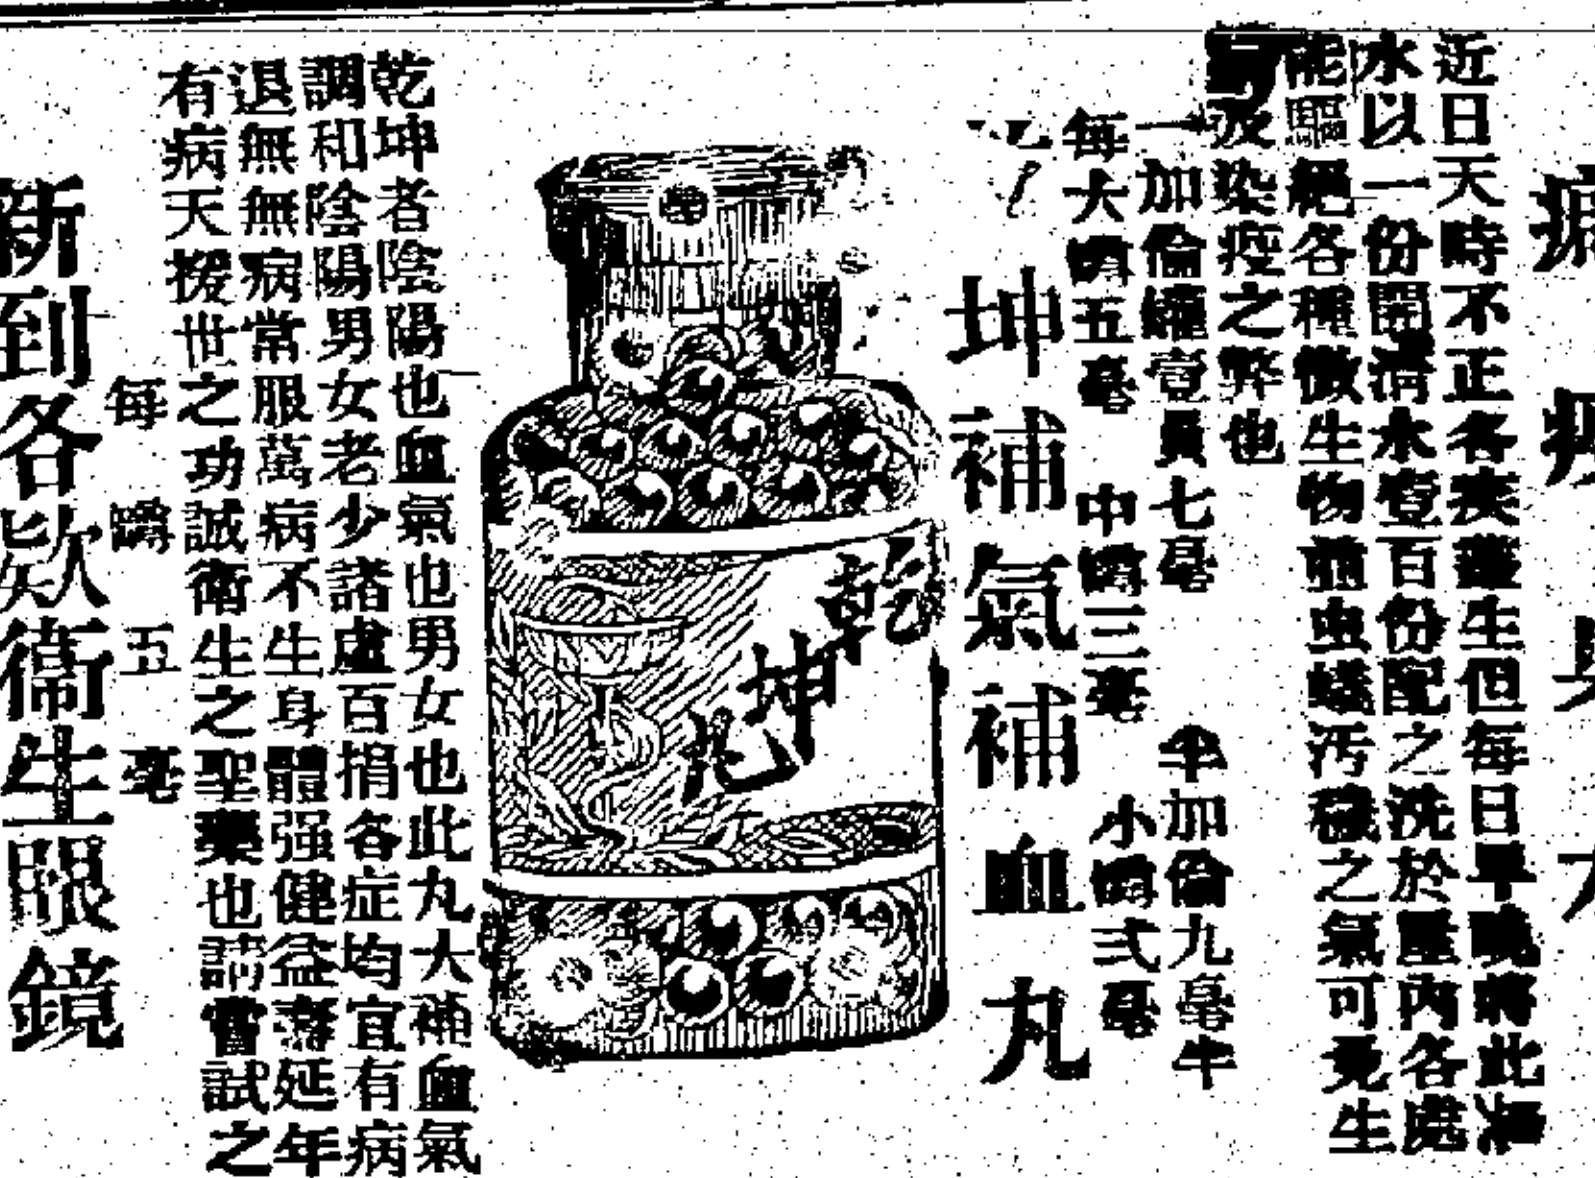 近日天時不正各疾叢生但每日早晚將此
水以一份開清水壹百份配之洗於屋內各處
能驅絕各種微生物蟲蟻污穢之氣可免生
及染疫之弊也
一加倫罐壹員七毫 半加倫九毫半
每大樽五毫 中樽三毫 小樽弍毫
坤補氣補血丸
乾坤丸
乾坤者陰陽也血氣也男女也此丸大補血氣
調和陰陽男女老少諸虛百損各症均宜有病
退無無病常服萬病不生身體强健益壽延年
有病天援世之功誠衛生之聖藥也請嘗試之
每樽五毫
新到各欵衞生眼鏡